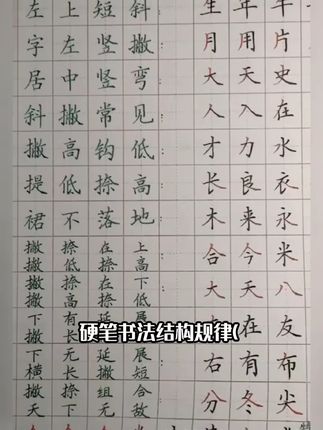 左上短斜 生年
字左竖撇 月用片
居中竖弯 大天史
斜撇常见 人入在
撇高钩低 才力水
提低捺高 长良衣
裙不落地 木来永
撇捺在上
撇低捺高 合今米
撇捺在下
撇高捺低 大天八
下有延展 在友
硬笔书法结构规律(
下无延展
横长撇短 右有布
撇无组合 分冬尖